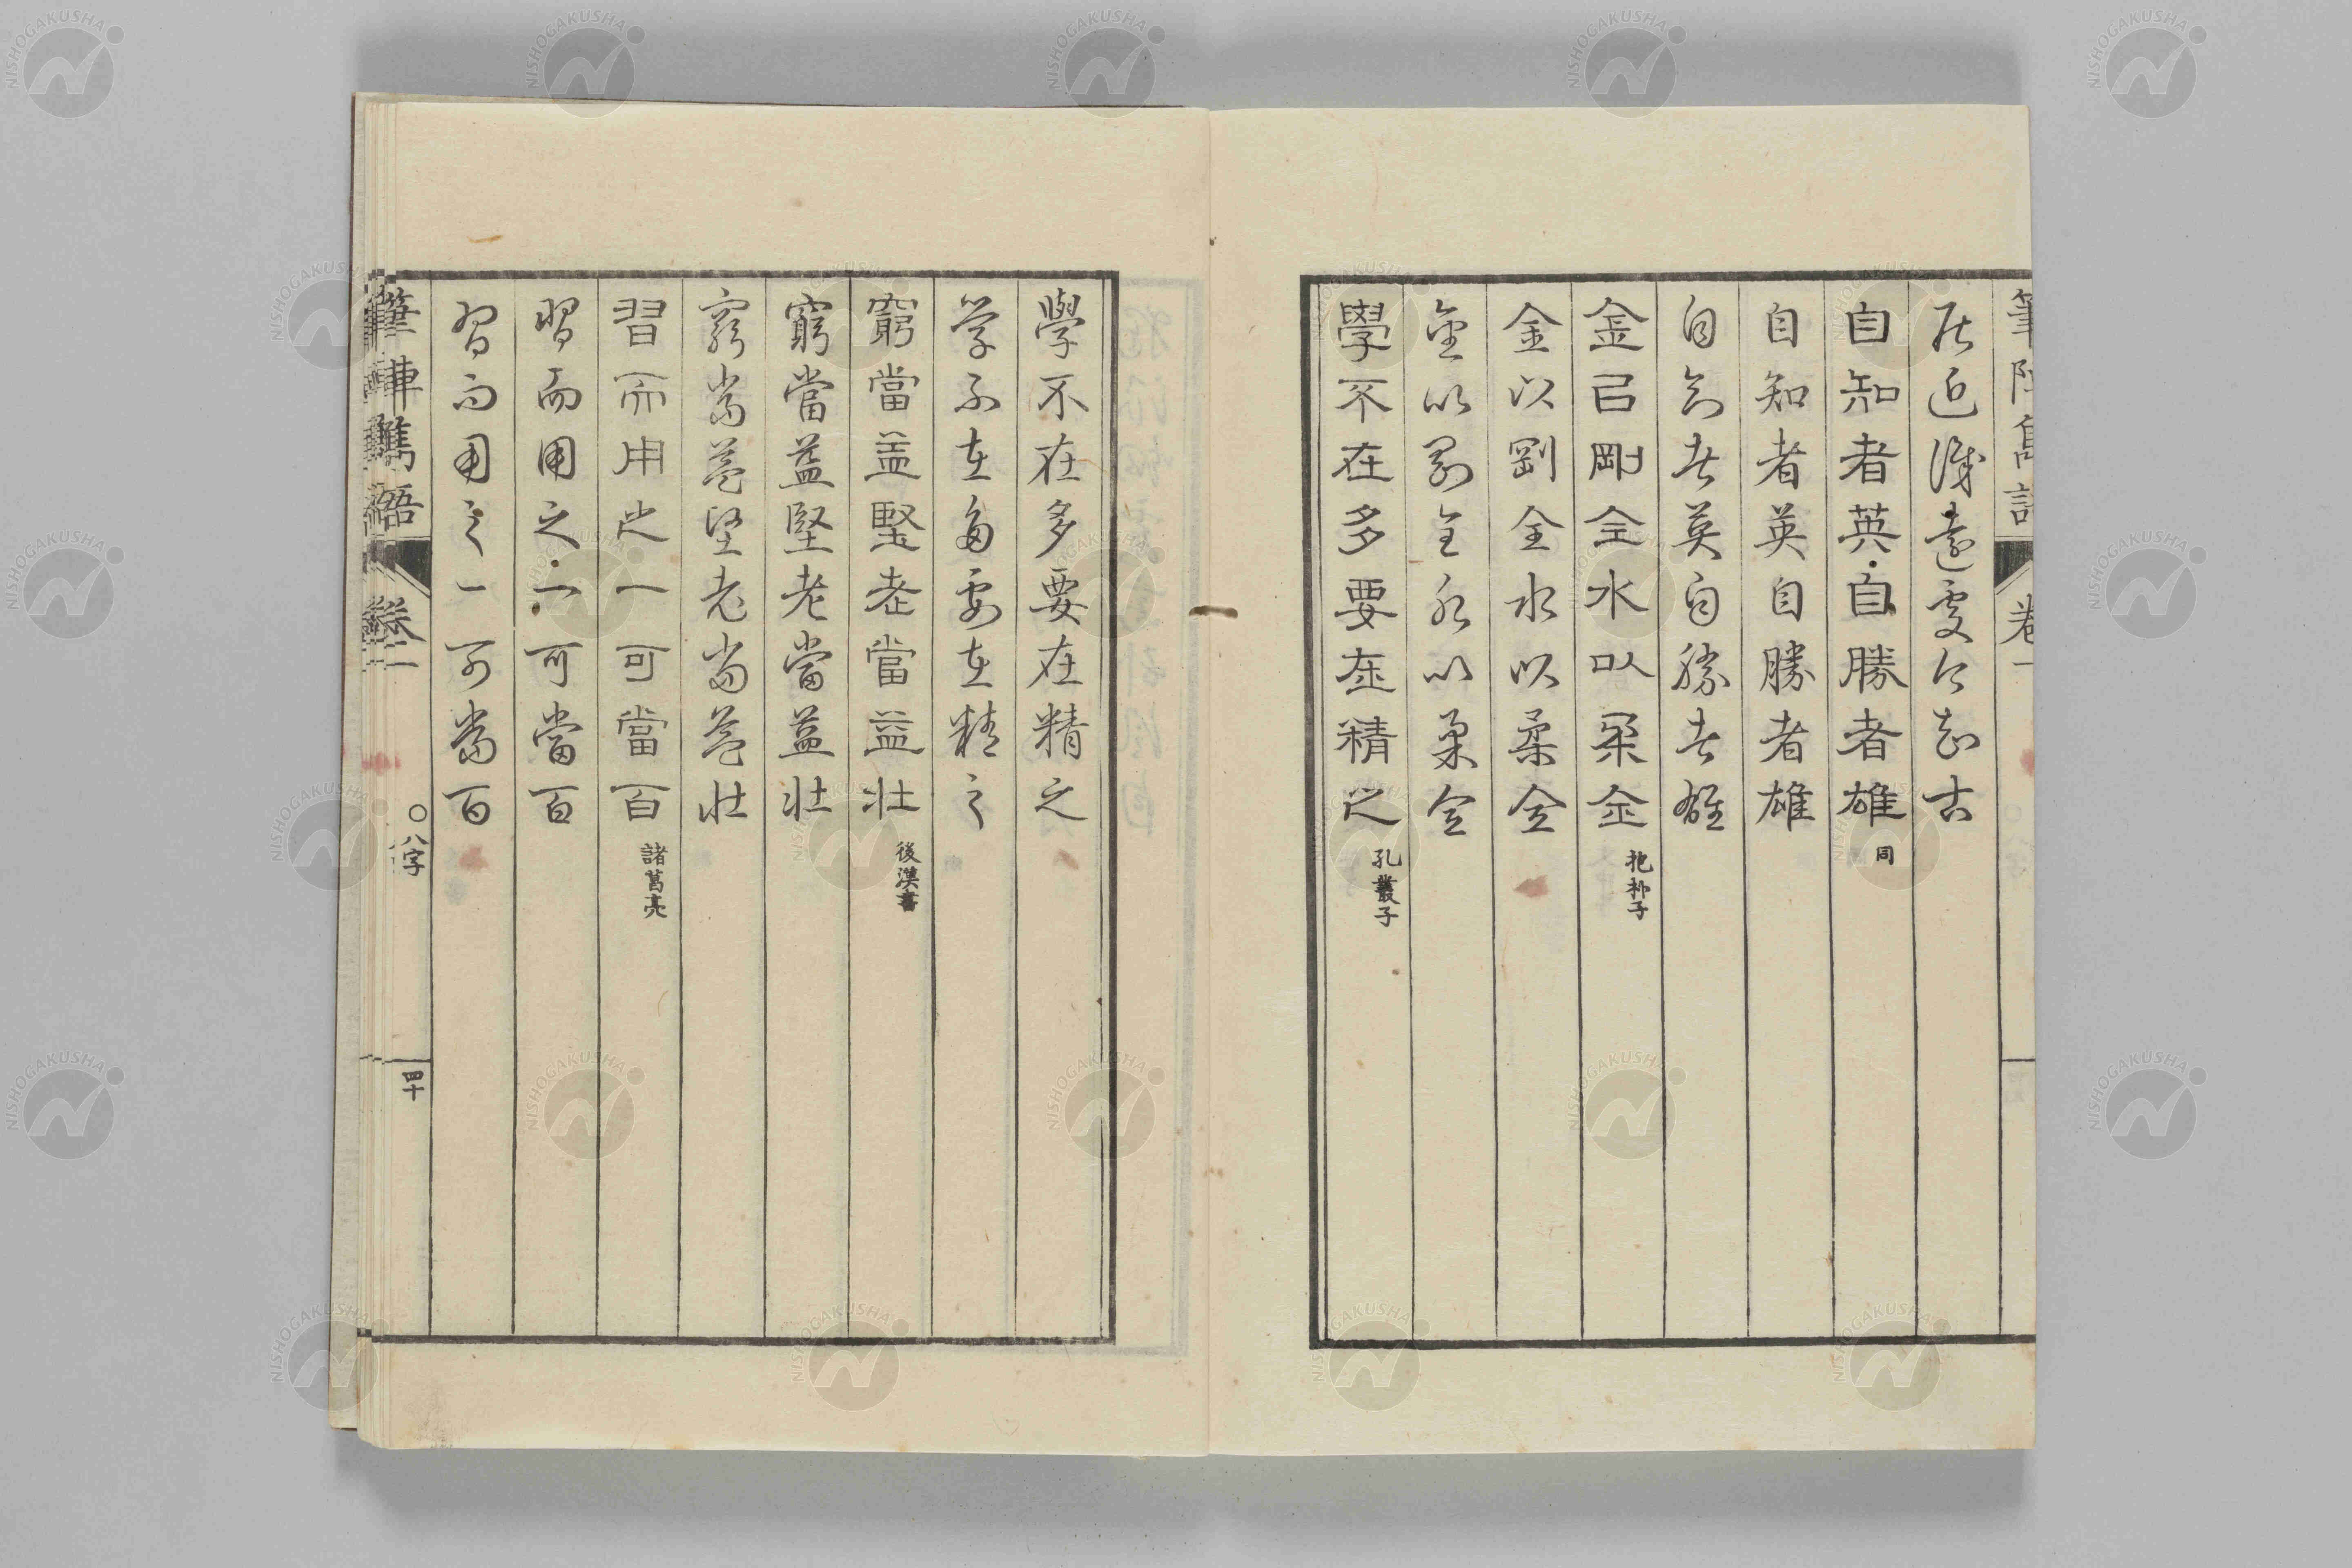 筆陣雋語 卷一
居近識遠處今知古
自知者英自勝者雄 同
自知者英自勝者雄
自知者英自勝者雄
金㠯剛全水以柔全 抱朴子
金以剛全水以柔全
金以剛全水以柔全
學不在多要在精之 孔叢子
學不在多要在精之
学不在多要在精之
窮當益堅老當益壯 後漢書
窮當益堅老當益壯
窮當益堅老當益壯
習而用之一可當百 諸葛亮
習而用之一可當百
習而用之一可當百
筆陣雋語 卷一 〇八字 四十
NISHOGAKUSHA